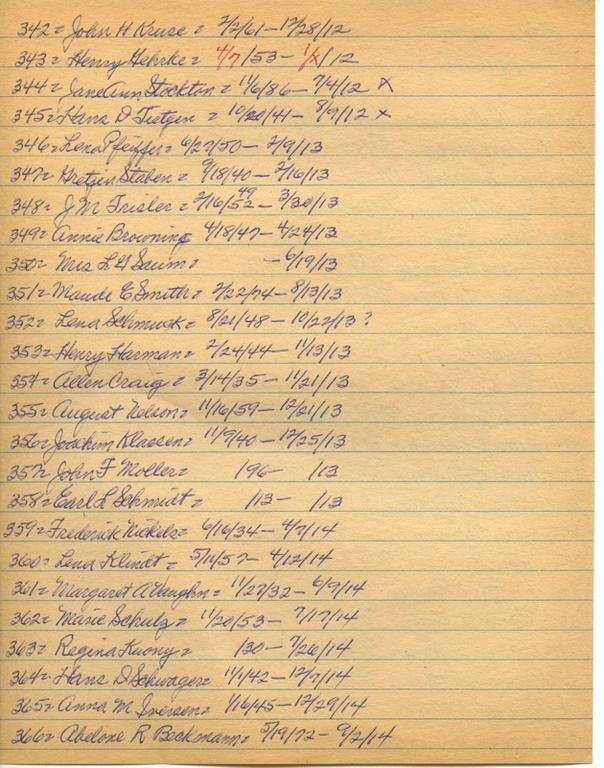 342= John H Kruse = 2/2/61 - 12/28/12
343= Henry Gehrke = 4/7/53 - 1/x/12
344= Jane Ann Stockton = 11/6/86 - 7/4/12 x
345= Hans D Tietgen = 10/20/41 - 8/9/12 x
346= Lena Pfeiffer = 6/27/50 - 2/9/13
347= Gretjen Staben = 9/18/40 - 2/16/13
348= J M Trisler = 2/16/52 49 - 3/30/13
349= Annie Browning 4/18/47 - 4/24/13
350= Mrs L G Saum = - 6/19/13
351= Maude E Smith = 2/22/74 - 8/13/13
352= Lena Schmuck = 8/21/48 - 10/22/13 ?
353= Henry Harman = 2/24/44 - 11/13/13
354= Allen Craig = 3/14/35 - 11/21/13
355= August Nelson = 11/16/59 - 12/21/13
356= Joakim Klassen = 11/9/40 - 12/25/13
357= John F Moller = /96 - /13
358= Earl L Schmidt = /13 - /13
359= Frederick Nickels = 6/16/34 - 4/7/14
360= Lena Klindt = 5/11/57 - 4/12/14
361= Margaret A Vaughn = 11/27/32 - 6/9/14
362= Marie Schulz = 11/20/53 - 7/17/14
363= Regina Kuony = /30 - 7/26/14
364= Hans D Schwager = 11/1/42 - 12/7/14
365= Anna M Iversen = 1/16/45 - 12/29/14
366= Abelone R Beckmann = 5/19/72 - 9/2/14